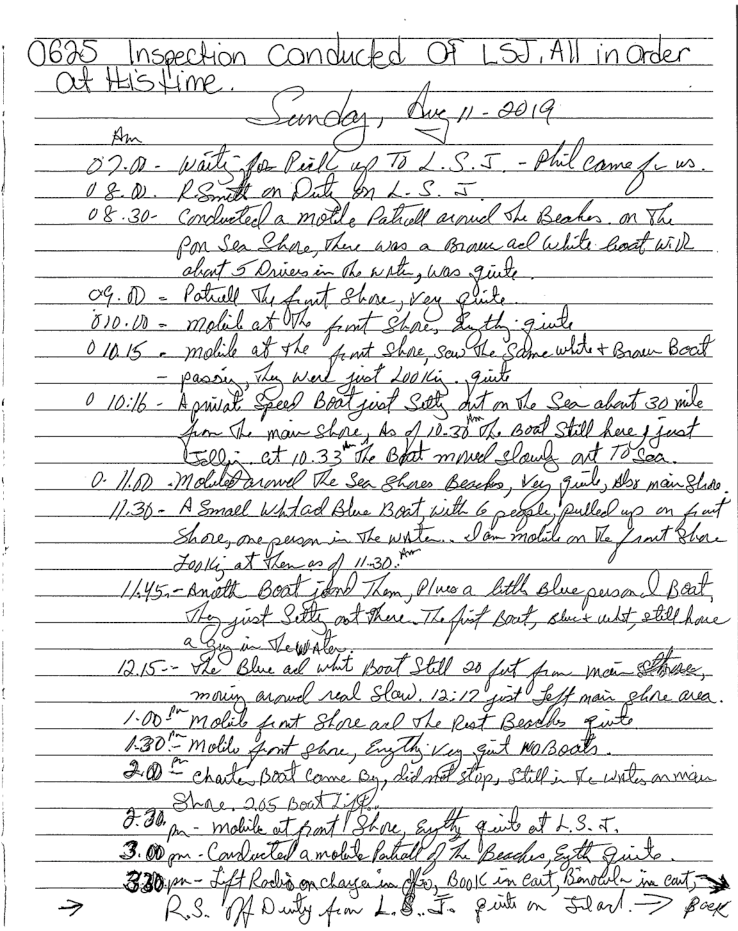 0625 Inspection Conducted Of LSJ. All in order
at this time.
Sunday, Aug 11 - 2019
Am
07.00 - Waiting for Pick up To L.S.J. - Phil came for us.
08.00. R Smith on Duty on L.S.J.
08.30 - Conducted a motile Patroll around the Beaches. on The
Sea Shore, There was a Brown and white boat with
about 5 Drivers in the water, was quite.
09.00 - Patroll The front Shore, Very quite.
010.00 - mobile at the front Shore, quite
010.15 - mobile at the front Shore, saw the Same white + Brown Boat
- passing, They were just Looking. quite
010:16 - A privat Speed Boat just Setting out on the Sea about 30 mile
from the main Shore, As of 10.30 Am The Boat Still here, just
at 10.33 Am The Boat moved slowly out To Sea.
0.11.00 - Mobiled around The Sea Shores Beaches, Very quite, Also main Shore.
11.30 - A Small Blue Boat, with 6 people, pulled up on front
Shore, one person in The water.. I am mobile on The front Shore
Looking at Them as of 11-30. Am
11.45. - Another Boat joined Them, Plues a little Blue personal Boat,
They just Setting out There. The first Boat, Blue + whit, still have
a Guy in The Water.
12.15 -- The Blue and whit Boat Still 20 feet from main Shore,
moving around real Slow. 12:12 just Left main shore area.
1.00 Pm - Mobile front Shore and The Rest Beaches quite
1.30 Pm - Mobile front Shore, Very quit No Boats.
2.00 Pm - Charter Boat Come By, did not stop, Still in The water on main
Shore. 2.05 Boat Left.
2.30. pm - mobile at front Shore, quite at L.S.J.
3.00 pm - Conducted a mobile Patroll of The Beaches, Quite.
3.30 pm - Left Radio on charger in Book in Cart, in cart, →
→ R.S. Off Duty from L.S.J. quite on Island. → Back